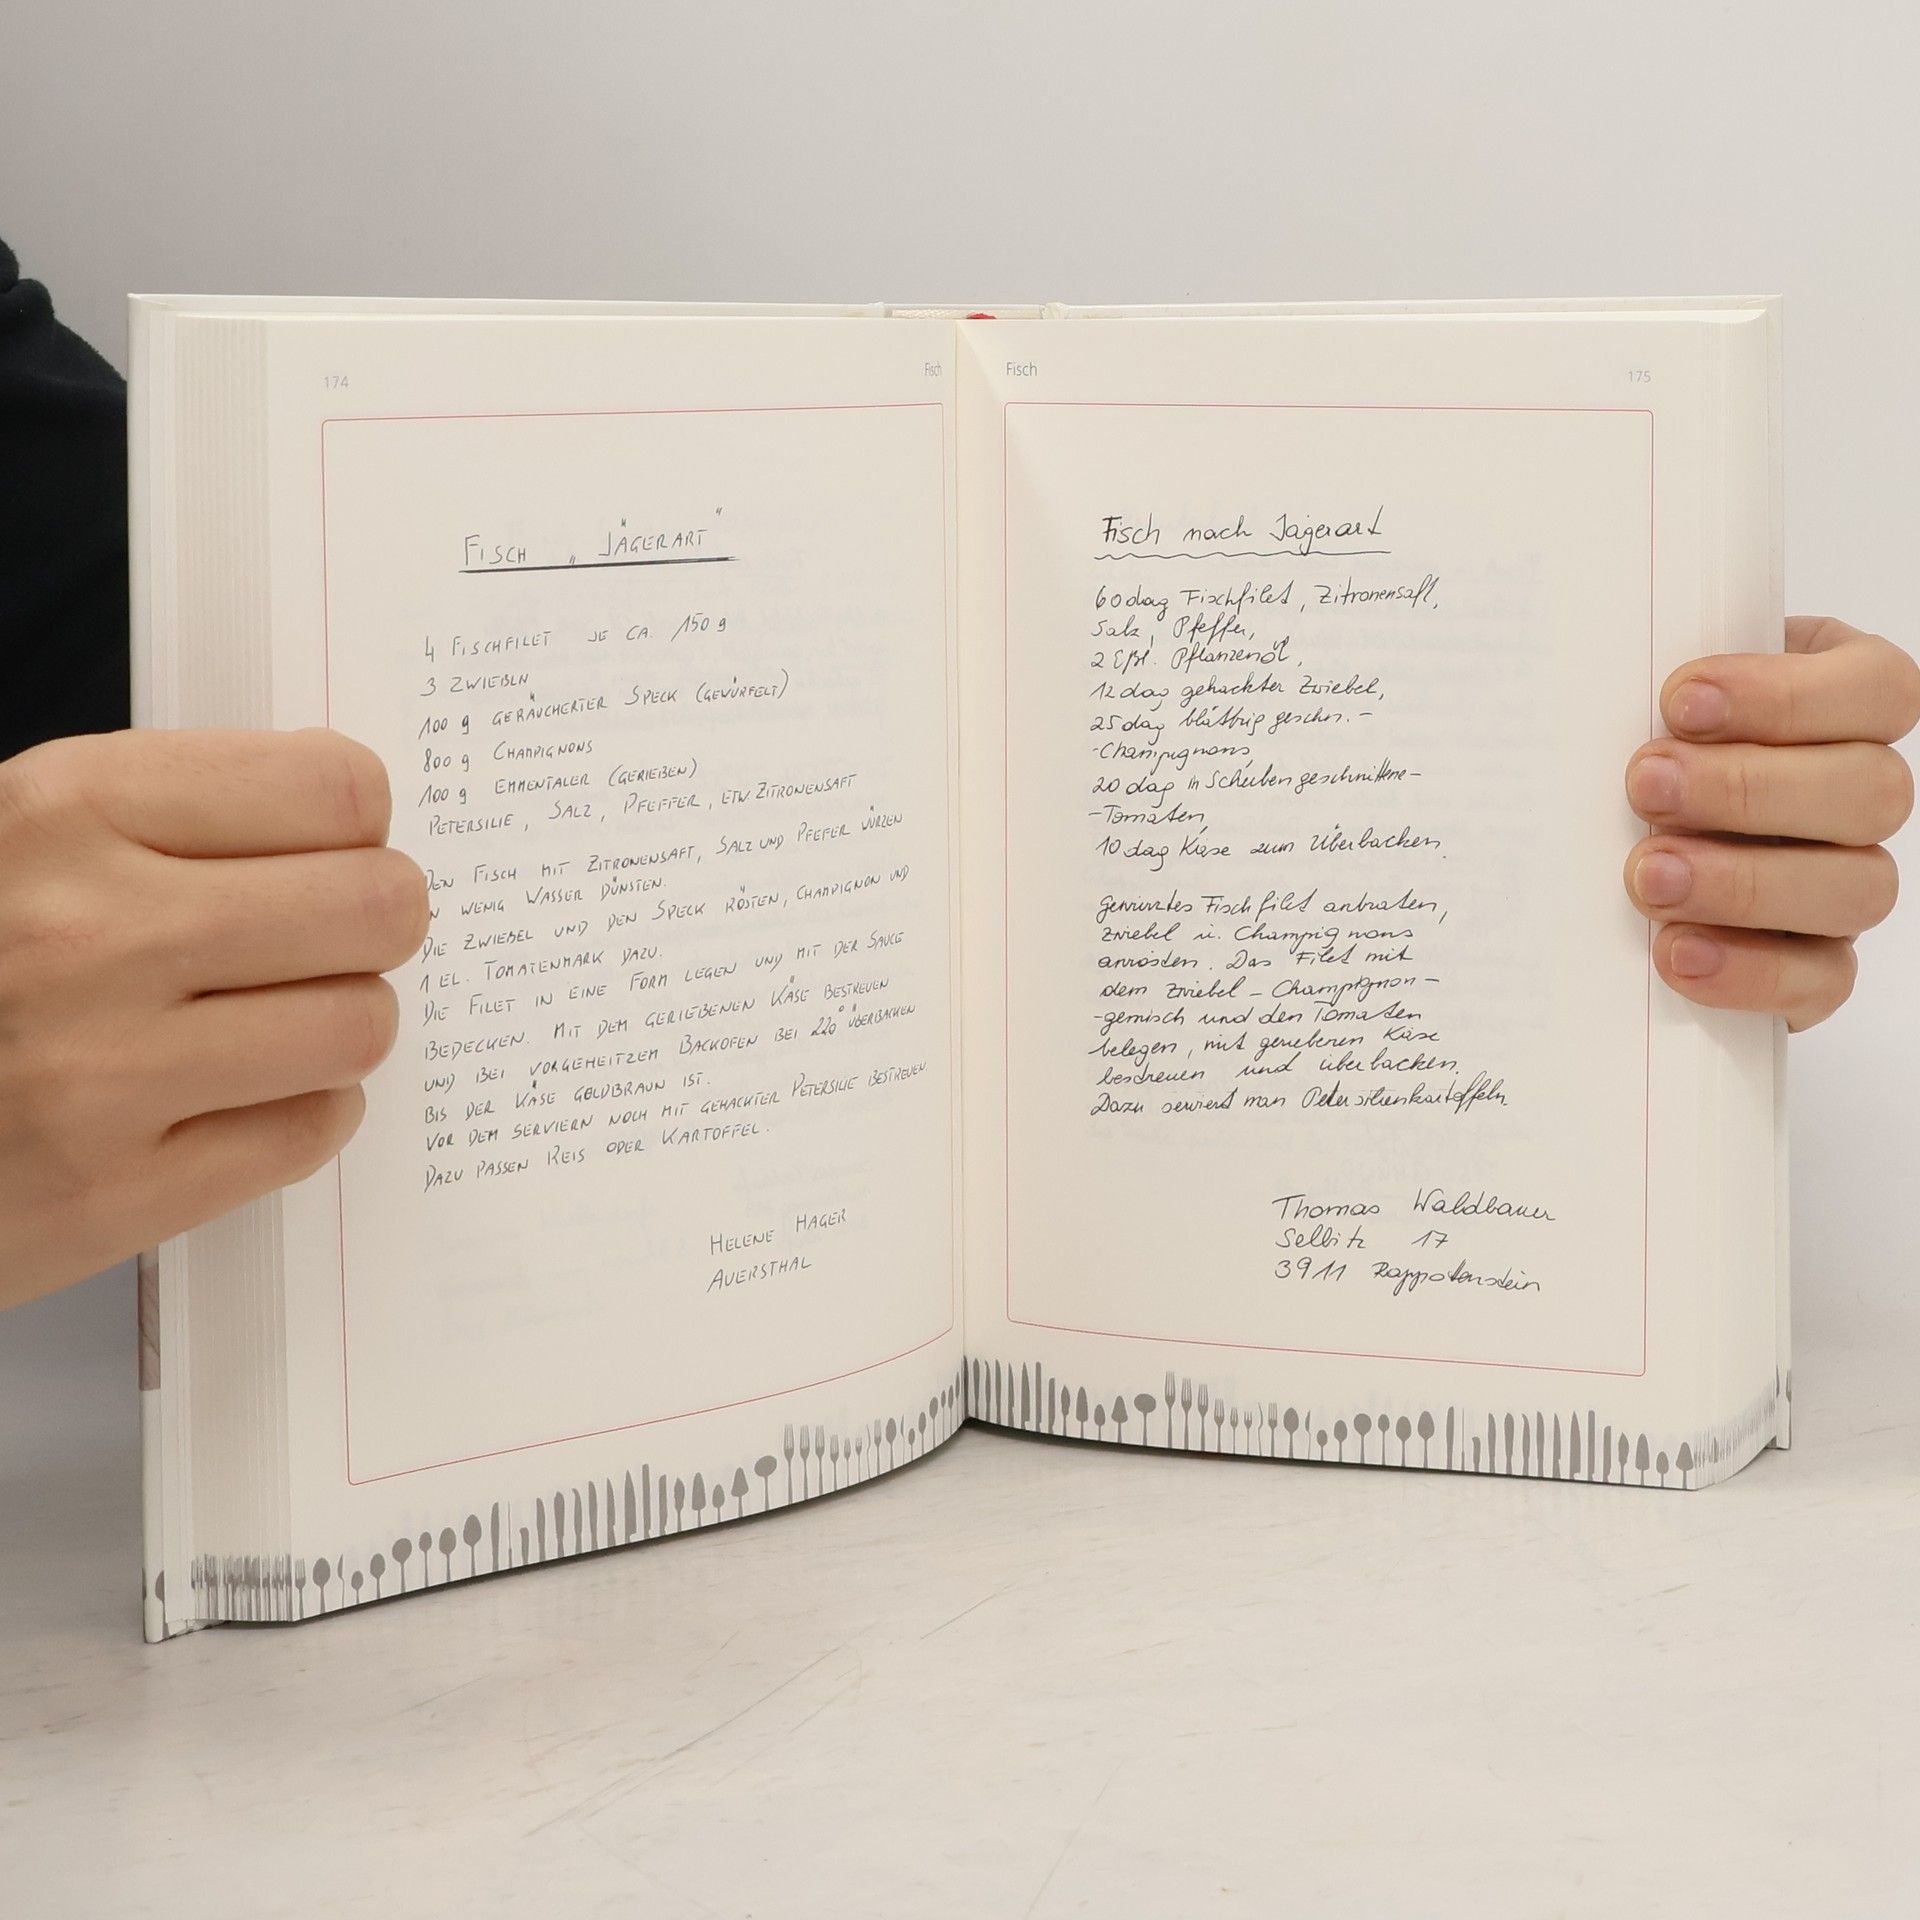 174
Fisch
FISCH „JÄGERART“
4 FISCHFILET JE CA. 150 g
3 ZWIEBLN
100 g GERÄUCHERTER SPECK (GEWÜRFELT)
800 g CHAMPIGNONS
100 g EMMENTALER (GERIEBEN)
PETERSILIE, SALZ, PFEFFER, ETW. ZITRONENSAFT
DEN FISCH MIT ZITRONENSAFT, SALZ UND PFEFER WÜRZEN
WENIG WASSER DÜNSTEN.
DIE ZWIEBEL UND DEN SPECK RÖSTEN, CHAMPIGNON UND
1 EL. TOMATENMARK DAZU.
DIE FILET IN EINE FORM LEGEN UND MIT DER SAUCE
BEDECKEN. MIT DEM GERIEBENEN KÄSE BESTREUEN
UND BEI VORGEHEITZEM BACKOFEN BEI 220° ÜBERBACKEN
BIS DER KÄSE GOLDBRAUN IST.
VOR DEM SERVIERN NOCH MIT GEHACKTER PETERSILIE BESTREUEN.
DAZU PASSEN REIS ODER KARTOFFEL.
HELENE HAGER
AUERSTHAL
Fisch
175
Fisch nach Jägerart
60 dag Fischfilet, Zitronensaft,
Salz, Pfeffer,
2 Eßl. Pflanzenöl,
12 dag gehackter Zwiebel,
25 dag blättrig geschn.-
-Champignons,
20 dag in Scheiben geschnittene-
-Tomaten,
10 dag Käse zum Überbacken.
gewürztes Fischfilet anbraten,
Zwiebel u. Champignons
anrösten. Das Filet mit
dem Zwiebel-Champignon-
-gemisch und den Tomaten
belegen, mit geriebenen Käse
bestreuen und überbacken.
Dazu serviert man Petersilienkartoffeln.
Thomas Waldbauer
Selbitz 17
3911 Rappotenstein